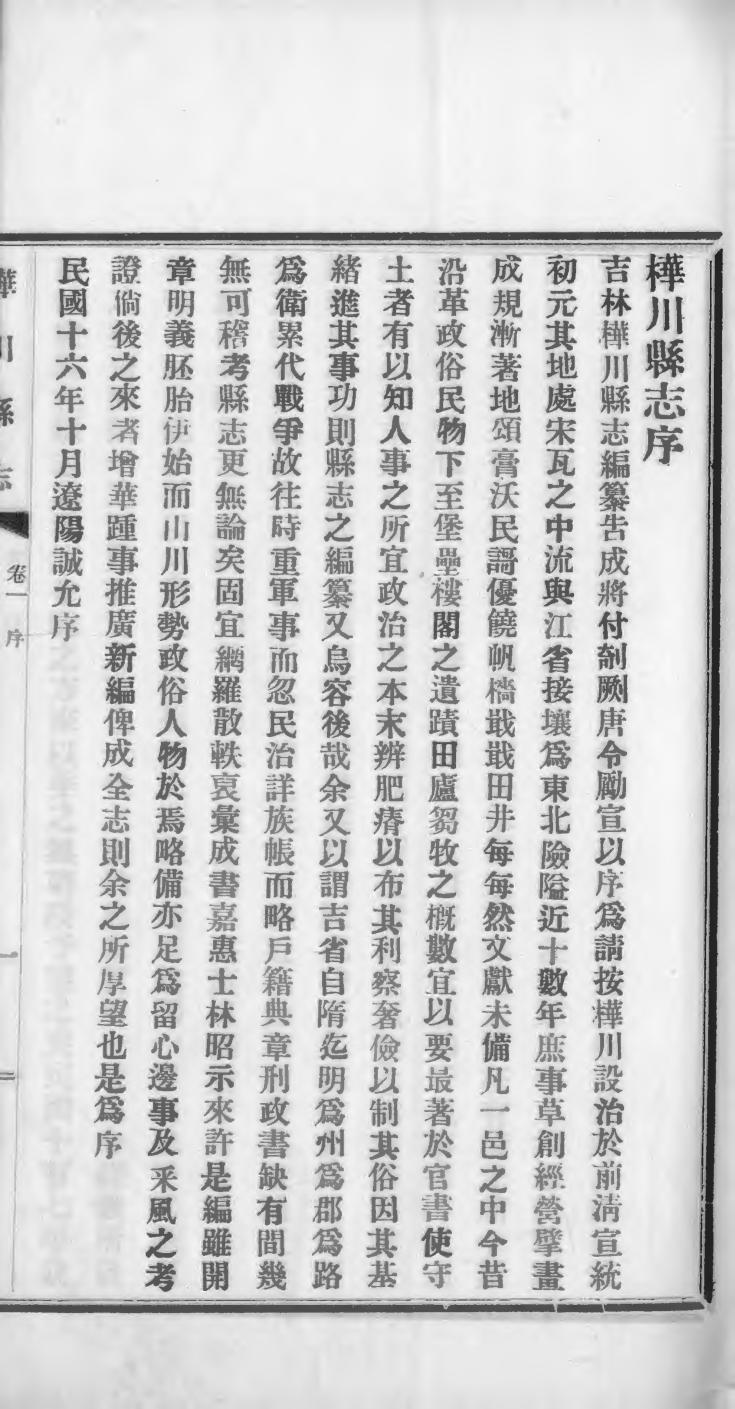 樺川縣志序
吉林樺川縣志編纂吿成將付剞劂唐令勵宣以序爲請按樺川設治於前淸宣統
初元其地處宋瓦之中流與江省接壤爲東北險隘近十數年庶事草創經營擘畫
成規漸著地頌膏沃民謌優饒帆檣戢戢田井每每然文獻未備凡一邑之中今昔
沿革政俗民物下至堡壘樓閣之遺蹟田廬芻牧之槪數宜以要最著於官書使守
土者有以知人事之所宜政治之本末辨肥瘠以布其利察奢儉以制其俗因其基
緖進其事功則縣志之編纂又烏容後哉余又以謂吉省自隋迄明爲州爲郡爲路
爲衛累代戰爭故往時重軍事而忽民治詳族帳而略戶籍典章刑政書缺有間幾
無可稽考縣志更無論矣固宜網羅散軼裒彙成書嘉惠士林昭示來許是編雖開
章明義胚胎伊始而山川形勢政俗人物於焉略備亦足爲留心邊事及采風之考
證倘後之來者增華踵事推廣新編俾成全志則余之所厚望也是爲序
民國十六年十月遼陽誠允序
樺川縣志
卷一
序
一